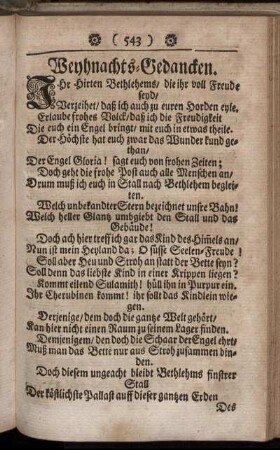 ( 543 )
Weyhnachts-Gedancken.
IHr Hirten Bethlehems, die ihr voll Freude
seyd,
Verzeihet, daß ich auch zu euren Horden eyle.
Erlaube frohes Volck, daß ich die Freudigkeit
Die euch ein Engel bringt, mit euch in etwas theile.
Der Höchste hat euch zwar das Wunder kund ge-
than,
Der Engel Gloria! sagt euch von frohen Zeiten;
Doch geht die frohe Post auch alle Menschen an,
Drum muß ich euch in Stall nach Bethlehem beglei-
ten.
Welch unbekandter Stern bezeichnet unsre Bahn!
Welch heller Glantz umbgiebt den Stall und das
Gebäude!
Doch ach hier treff ich gar das Kind des Him̃els an,
Nun ist mein Heyland da; O süsse Seelen-Freude!
Soll aber Heu und Stroh an statt der Bette seyn?
Soll denn das liebste Kind in einer Krippen liegen?
Kommt eilend Sulamith! hüll ihn in Purpur ein.
Ihr Cherubinen kommt! ihr sollt das Kindlein wie-
gen.
Derjenige, dem doch die gantze Welt gehört,
Kan hier nicht einen Raum zu seinem Lager finden.
Demjenigem, den doch die Schaar der Engel ehrt,
Muß man das Bette nur aus Stroh zusammen bin-
den.
Doch diesem ungeacht bleibt Bethlehms finstrer
Stall
Der köstlichste Pallast auff dieser gantzen Erden
Des